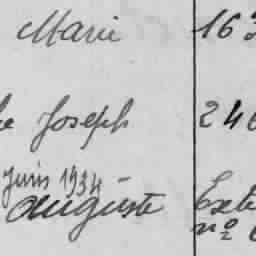 Marie 16
Joseph 24
Juin 1934 –
Auguste
nº